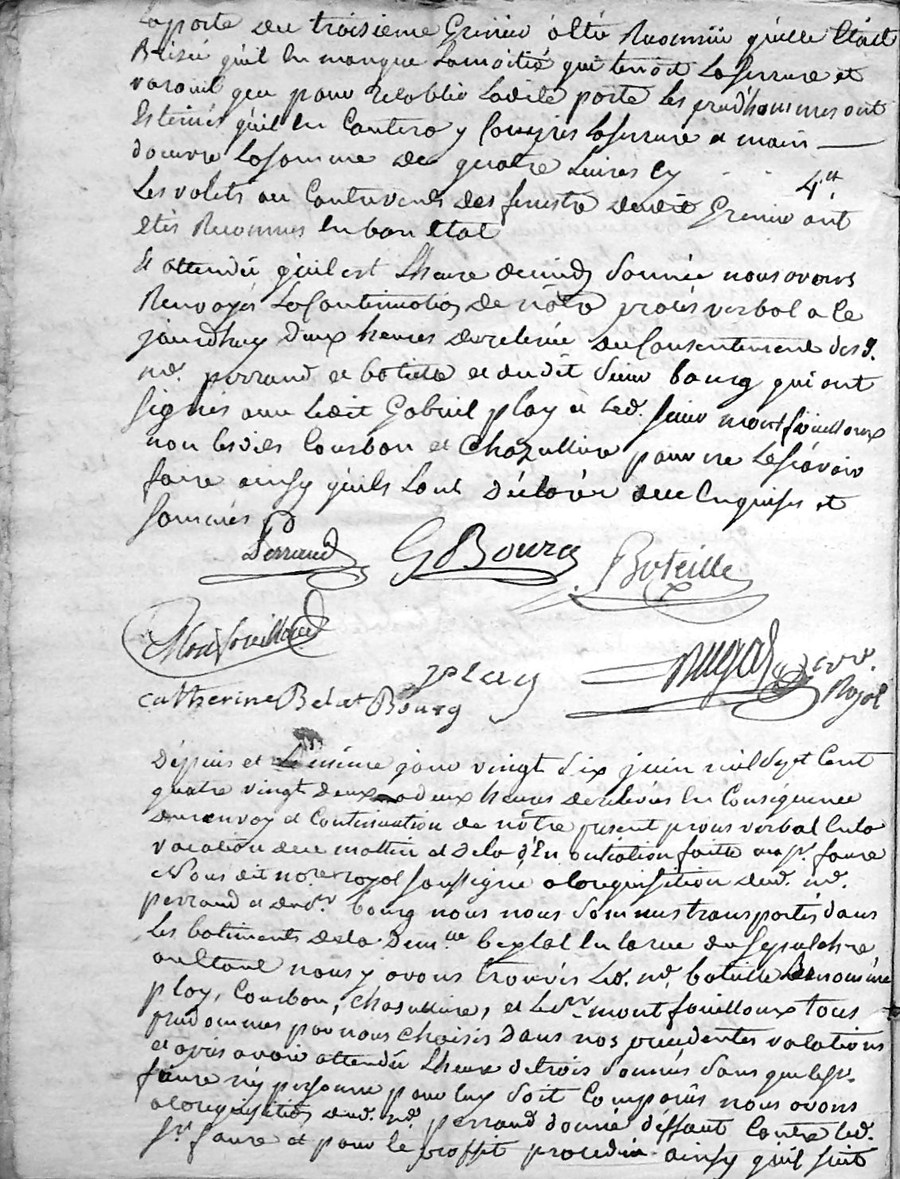 La porte du troisieme Grenier a été Reconnüe qu'elle Etait
Brisée qu'il en manque La moitié qui tenoit La serrure et
que pour Retablir Ladite porte Les prud'hommes ont
Estimés qu'il En Coutera y Compris La serrure et main
d'oeuvre La somme de quatre Livres Cy 4tt
Les volets ou Contrevents des fenestre dudit Grenier ont
Etés Reconnus En bon Etat
Et attendu qu'il est L'heure de midy Sonnée nous avons
Renvoyés La Continuation de nôtre procès verbal a ce
jourd'huy Deux heures de relevée du Consentement des Srs.
me. perrand et botille et dudit Sieur bourg qui ont
Signés avec Ledit Gabriel play et Led. Sieur montfouilloux
non lesdits Courbon et Chazultiere pour ne Le sçavoir
faire ainsy qu'ils L'ont Déclarés de ce Enquises et
Sommés
Perrand GBourg Boteille
Monfouilloud play
Catherine Belat Bourg
Royal
Depuis et Le même jour vingt Six juin mil Sept Cent
quatre vingt deux a deux heures de relevées En Conséquence
du renvoy et Continuation de nôtre présent procès verbal En la
vacation de ce mattin et de la faitte au Sr. faure
Nous dit nore. royal Soussigné a la réquisition dud. me.
perrand et dud. Sr. bourg nous nous Sommes transportés dans
Les batiments de la Demlle En la rue du Sepulchre
ou Etant nous y avons trouvés Led. me. botille
play, Courbon, Chazultiere, et Led. Sr. montfouilloux tous
prudommes par nous Choisis Dans nos precedentes vacations
et après avoir attendu L'heure de trois Sonnés Sans que Le Sr.
faure ny personne pour Luy Soit Comparus nous avons
a la requisition dud. me. perrand donné déffaut Contre Led.
Sr. faure et pour le proffit procedés ainsy qu'il Suit